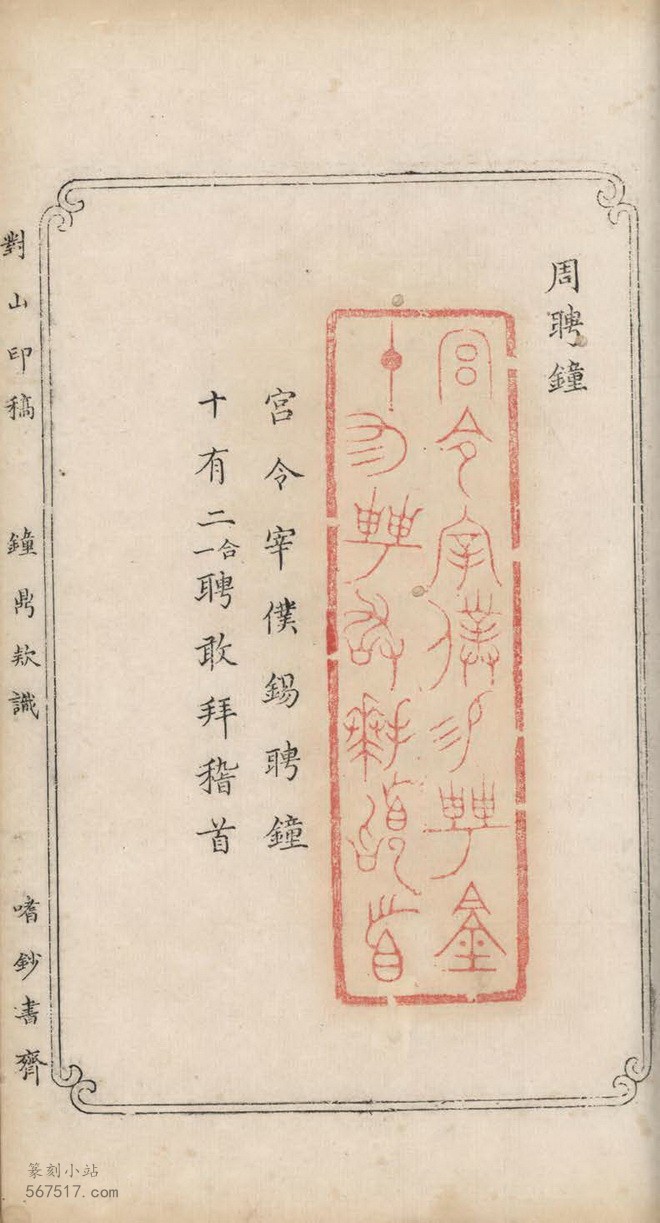 周聘鐘
宫令宰僕錫聘鐘
十有二一合聘敢拜稽首
對山印稿 鐘鼎款識 嗜鈔書齋
篆刻小站
567517.com